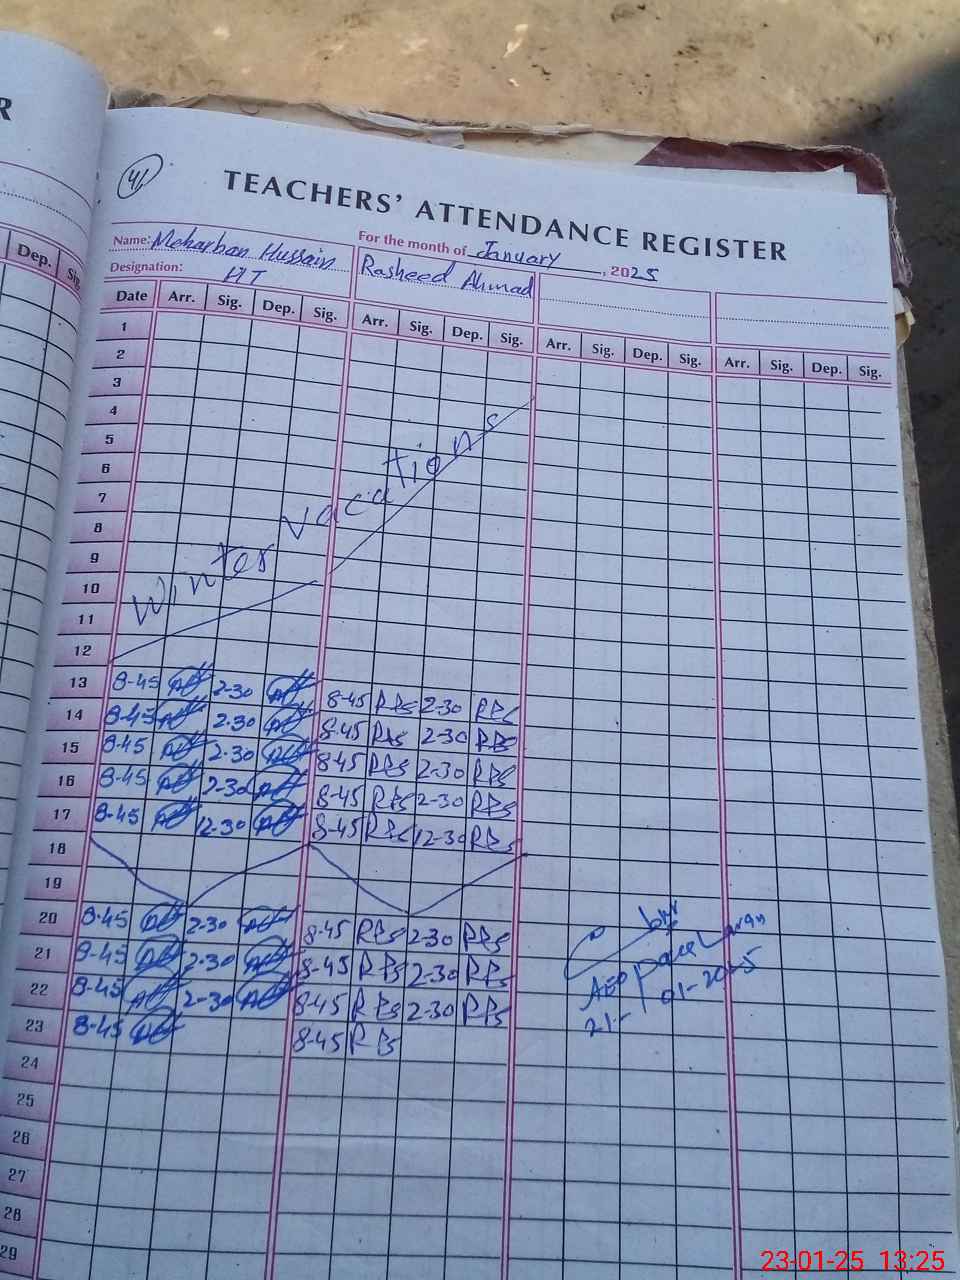 R
41
TEACHERS' ATTENDANCE REGISTER
Name: Meharban Hussain For the month of January, 2025
Designation: HT Rasheed Ahmad
Dep. Sig.
Date Arr. Sig. Dep. Sig. Arr. Sig. Dep. Sig. Arr. Sig. Dep. Sig. Arr. Sig. Dep. Sig.
1
2
3
4
5
6
7
8
9
10
11
12
Winter vacations
13 8-45 2-30 8-45 2-30
14 8-45 2-30 8-45 2-30
15 8-45 2-30 8-45 2-30
16 8-45 2-30 8-45 2-30
17 8-45 12-30 8-45 12-30
18
19
20 8-45 2-30 8-45 2-30
21 8-45 2-30 8-45 2-30
22 8-45 2-30 8-45 2-30
23 8-45 8-45
AEO
21-01-2025
24
25
26
27
28
29
23-01-25 13:25